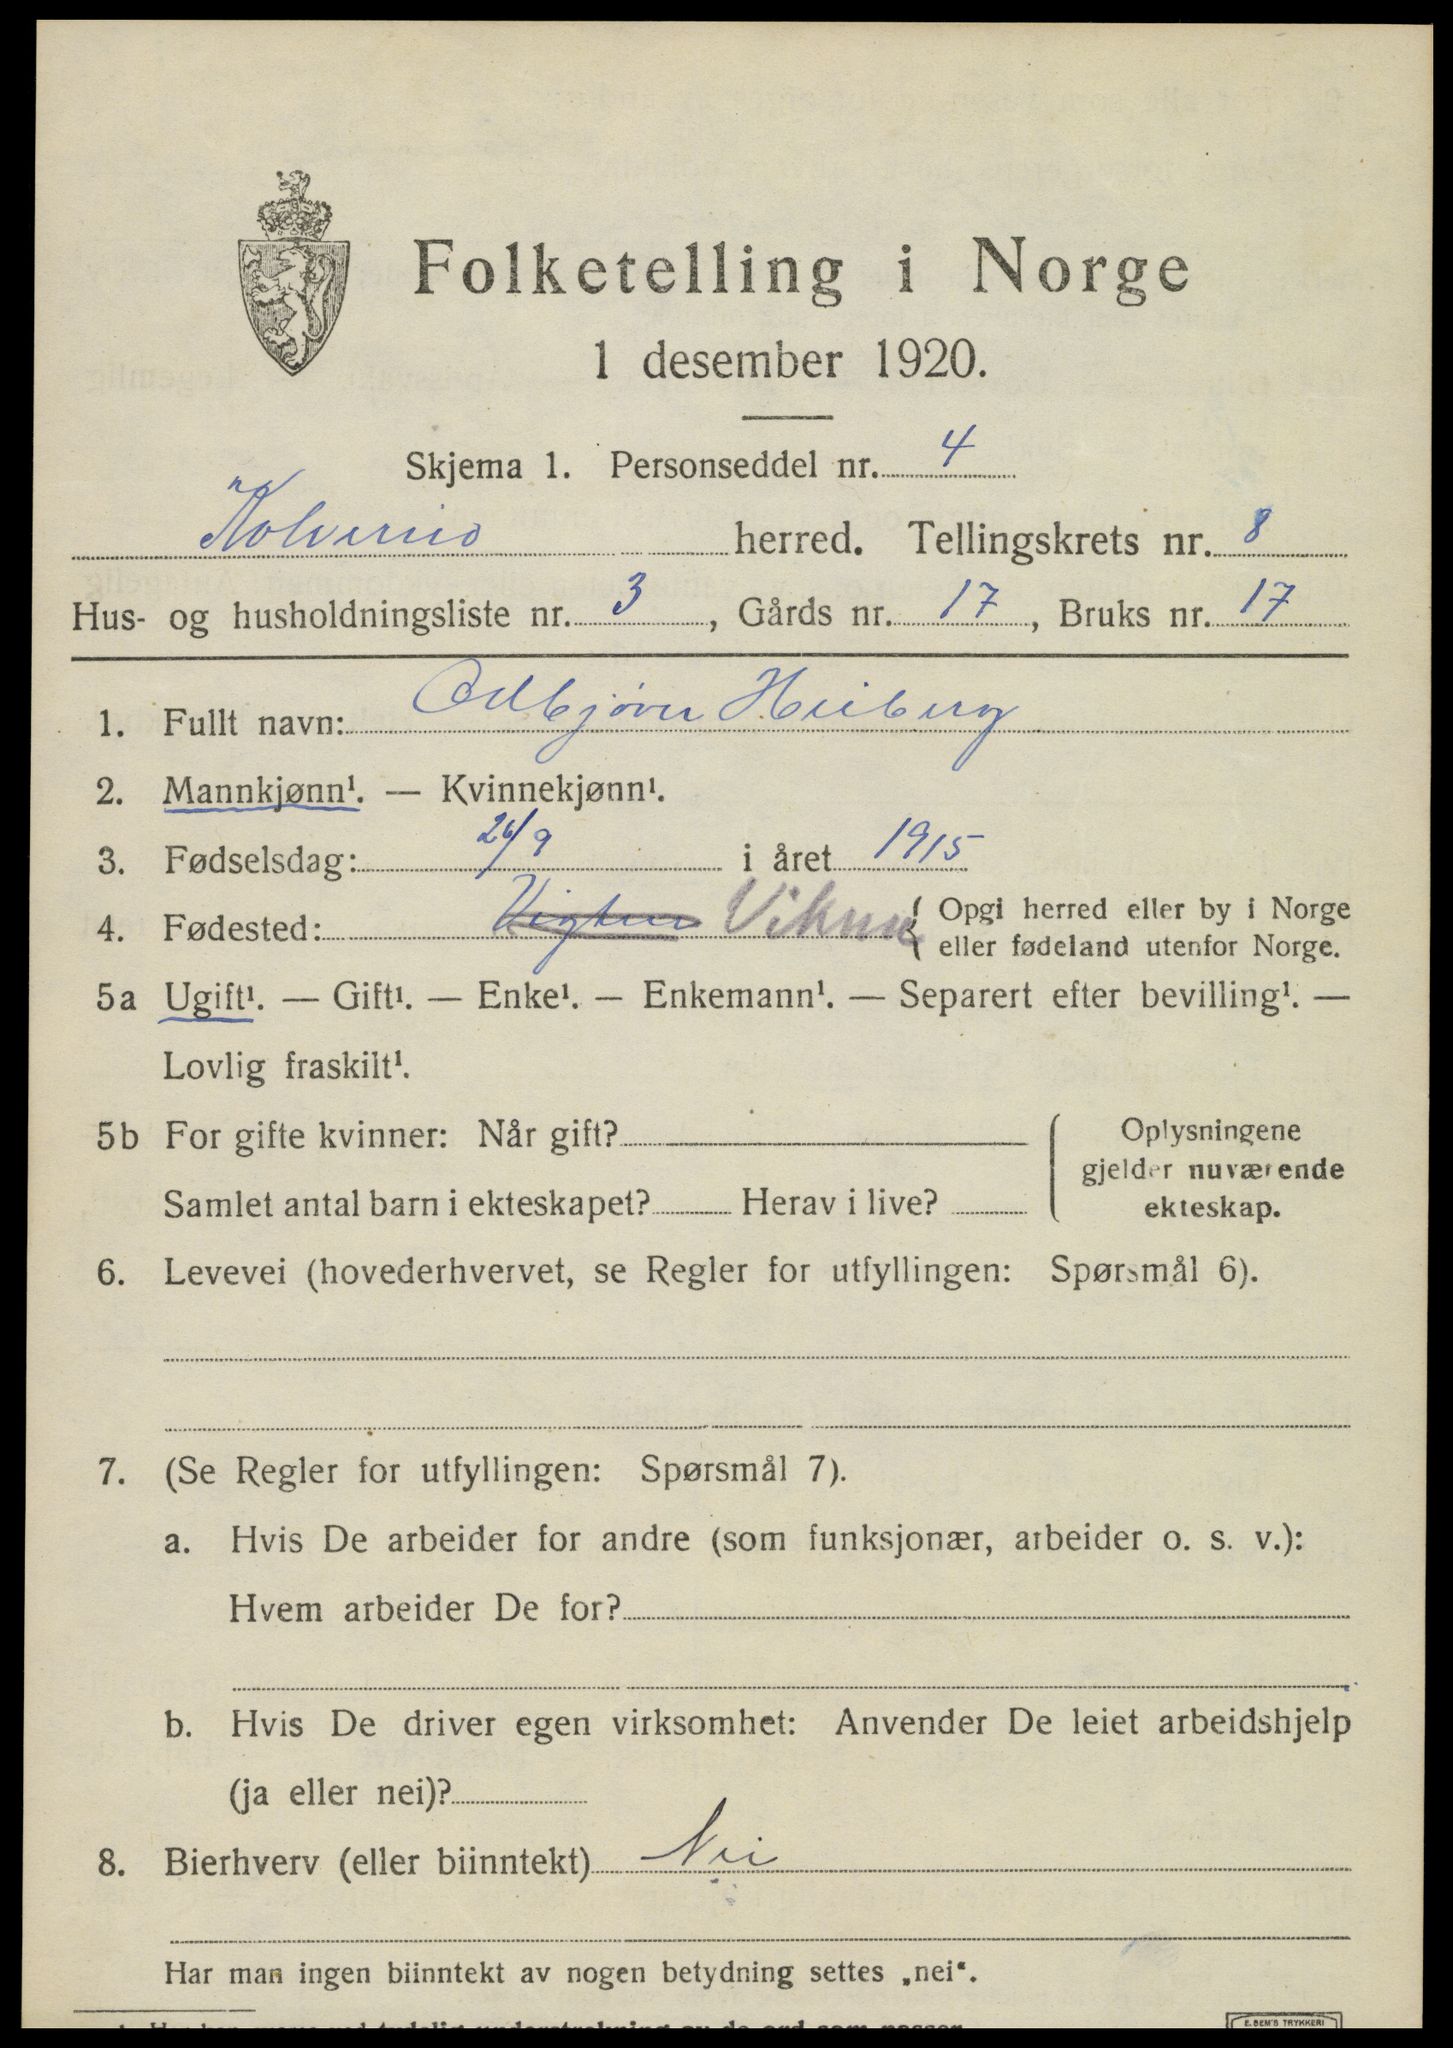 Folketelling i Norge
1 desember 1920.
Skjema 1. Personseddel nr. 4
Kolvereid herred. Tellingskrets nr. 8
Hus- og husholdningsliste nr. 3, Gårds nr. 17, Bruks nr. 17
1. Fullt navn: Odbjörn Heiberg
2. Mannkjønn¹. — Kvinnekjønn¹.
3. Fødselsdag: 26/9 i året 1915
4. Fødested: Vigten Vikna { Opgi herred eller by i Norge
eller fødeland utenfor Norge.
5a Ugift¹. — Gift¹. — Enke¹. — Enkemann¹. — Separert efter bevilling¹. —
Lovlig fraskilt¹.
5b For gifte kvinner: Når gift?
Samlet antal barn i ekteskapet? Herav i live?
Oplysningene
gjelder nuværende
ekteskap.
6. Levevei (hovederhvervet, se Regler for utfyllingen: Spørsmål 6).
7. (Se Regler for utfyllingen: Spørsmål 7).
a. Hvis De arbeider for andre (som funksjonær, arbeider o. s. v.):
Hvem arbeider De for?
b. Hvis De driver egen virksomhet: Anvender De leiet arbeidshjelp
(ja eller nei)?
8. Bierhverv (eller biinntekt) Nei
Har man ingen biinntekt av nogen betydning settes „nei“.
E. SEM'S TRYKKERI